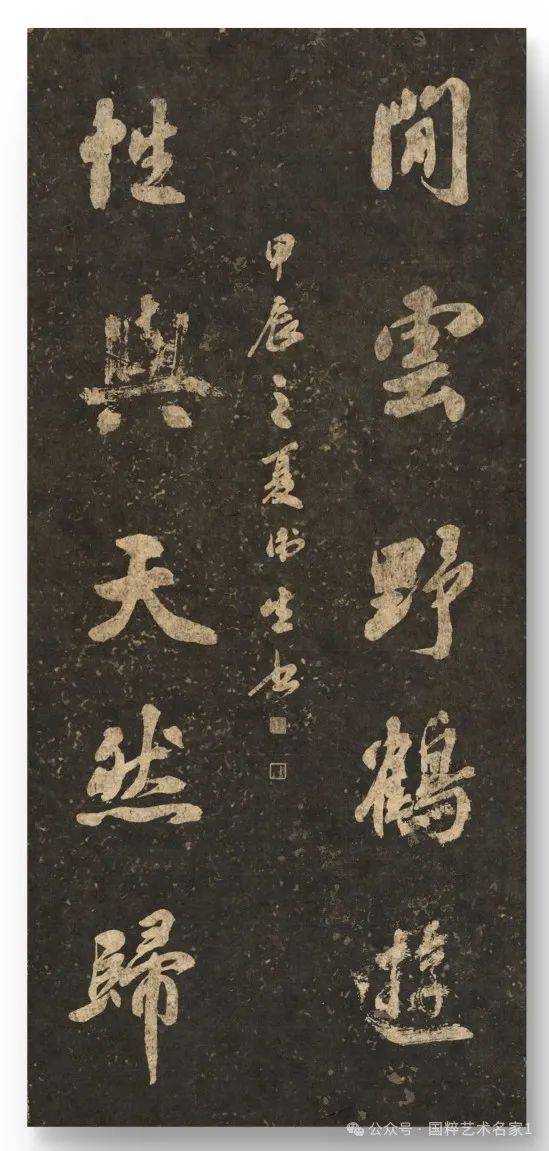 閒雲野鶴遊
甲辰之夏衛生书
性與天然歸
公众号·国粹艺术名家1